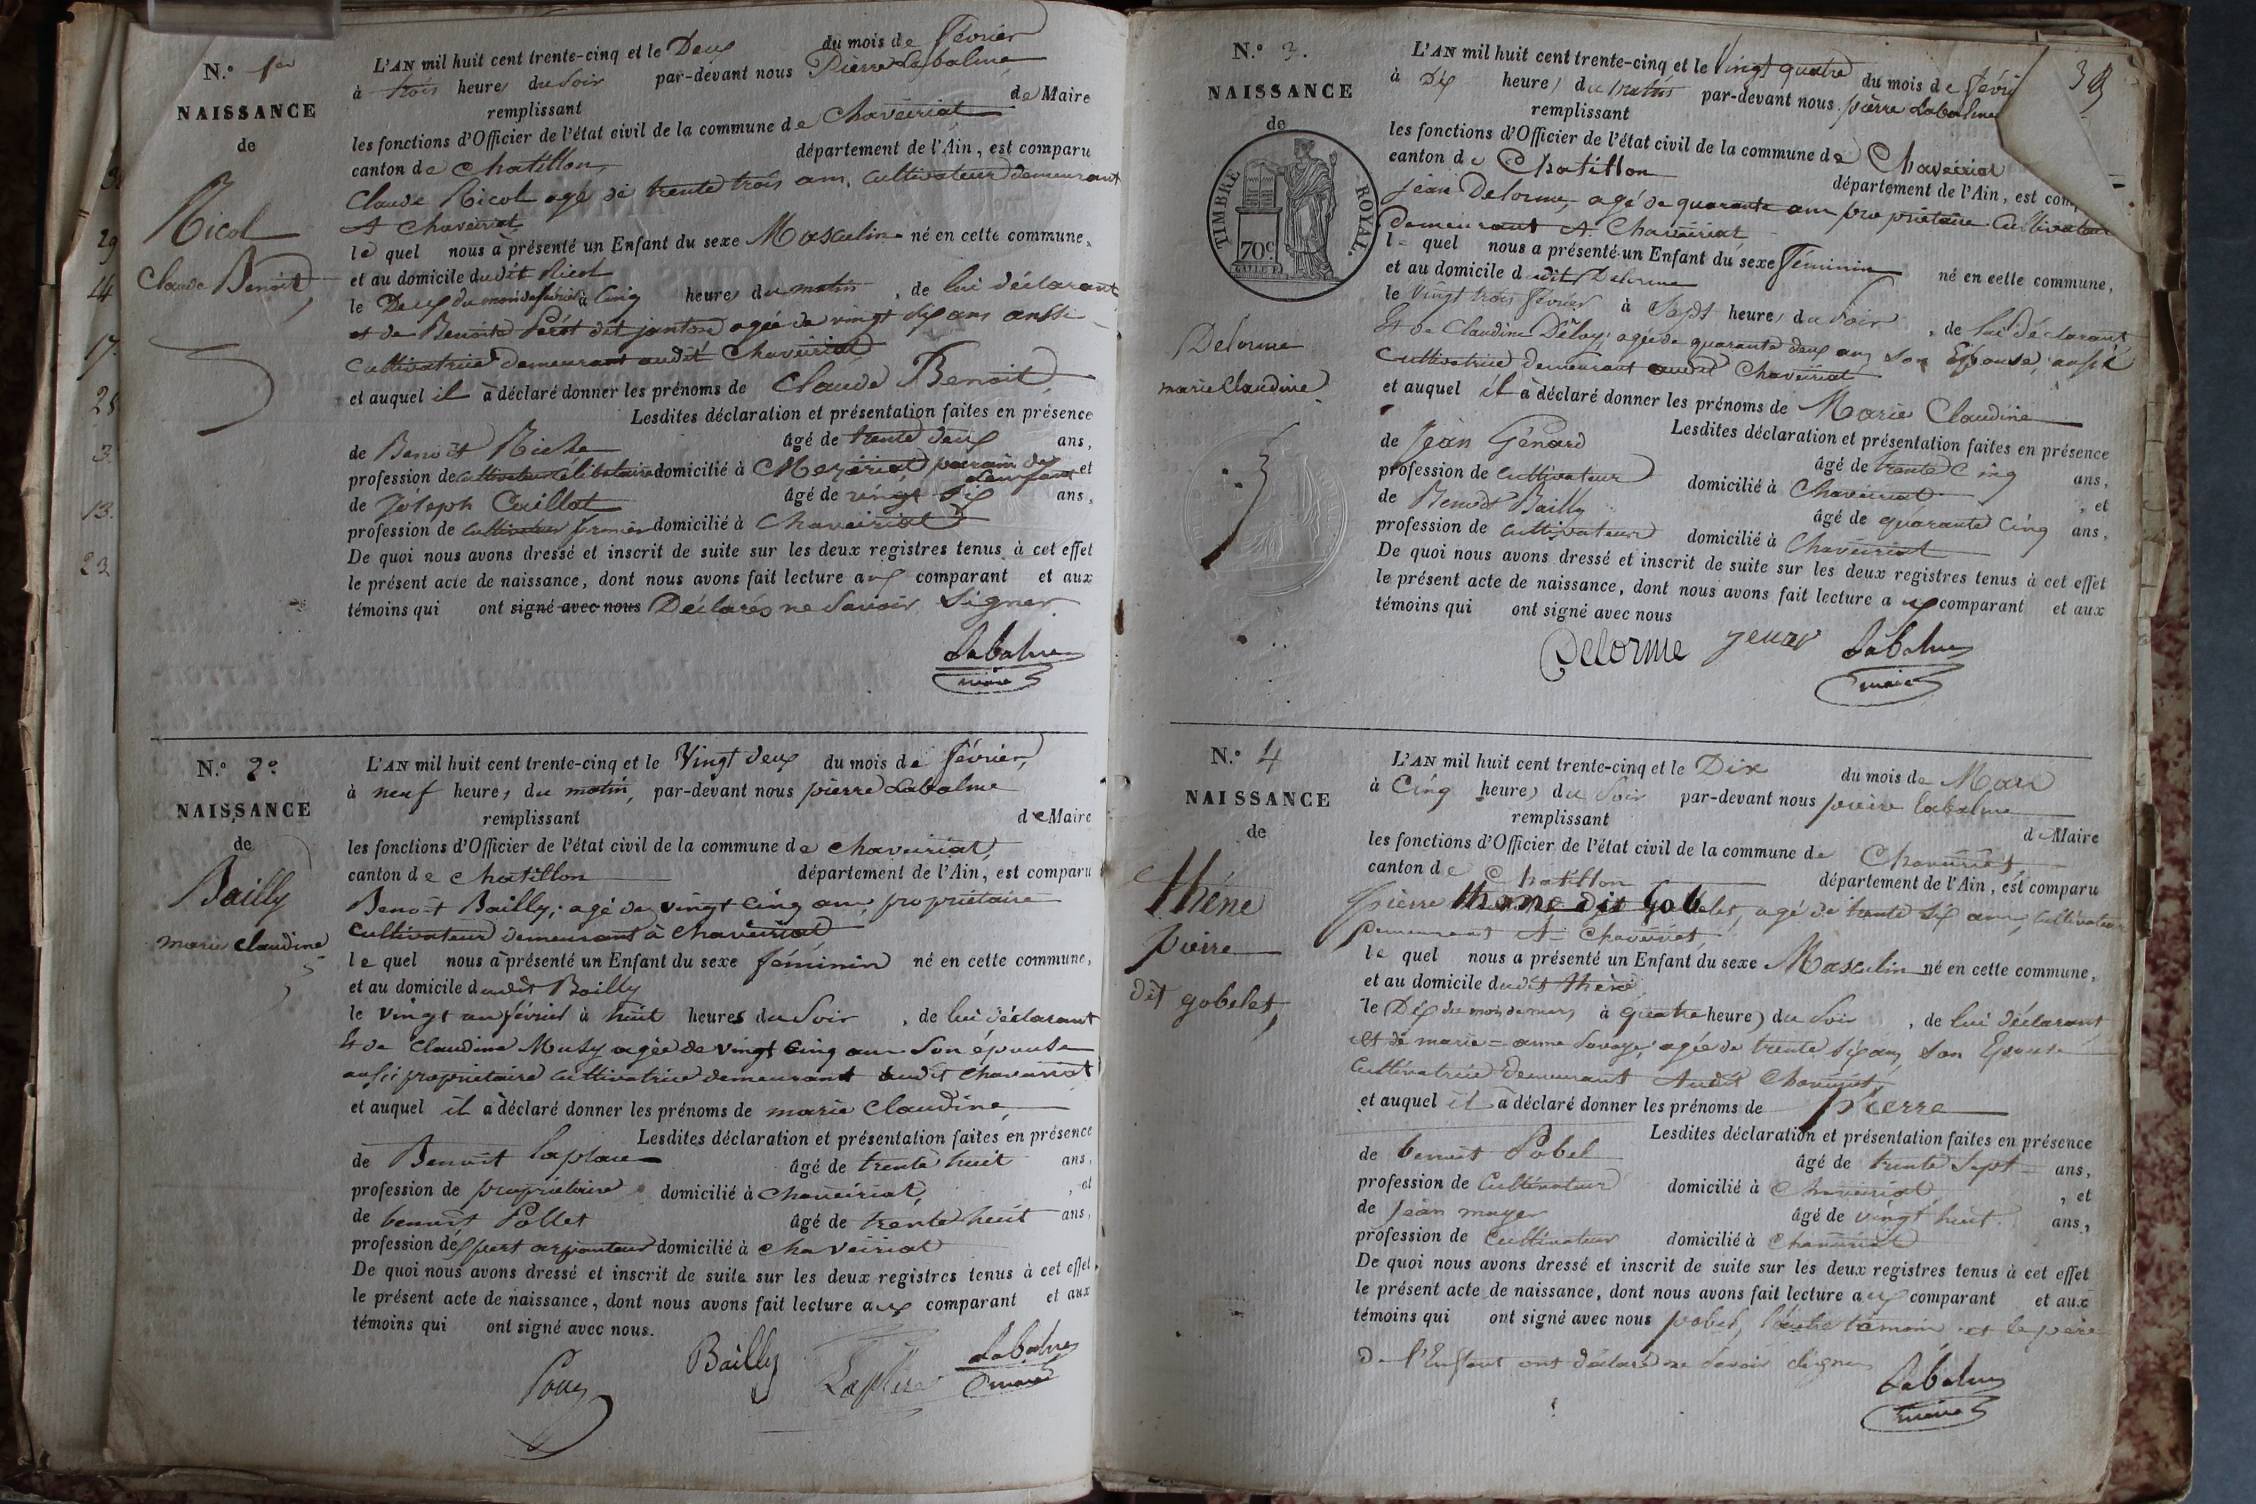 N.º 1er
NAISSANCE
de
Nicol
Claude Benoit
L'AN mil huit cent trente-cinq et le Deux du mois de février
à trois heures du soir par-devant nous Pierre Labalme
remplissant de Maire
les fonctions d'Officier de l'état civil de la commune de Chaveiriat
canton de Chatillon département de l'Ain, est comparu
Claude Nicol agé de trente trois ans, cultivateur demeurant
A Chaveiriat
le quel nous a présenté un Enfant du sexe Masculin né en cette commune,
et au domicile dudit Nicol
le Deux du mois de février à Cinq heures du matin, de lui déclarant
et de Benoite Perét dit janton agée de vingt six ans aussi
cultivatrice demeurant audit Chaveiriat
et auquel il a déclaré donner les prénoms de Claude Benoit
Lesdites déclaration et présentation faites en présence
de Benoit âgé de trente deux ans,
profession de cultivateur célibataire domicilié à Mezériat parain de lenfant et
de Joseph Caillat âgé de vingt six ans,
profession de cultivateur fermier domicilié à Chaveiriat
De quoi nous avons dressé et inscrit de suite sur les deux registres tenus à cet effet
le présent acte de naissance, dont nous avons fait lecture aux comparant et aux
témoins qui ont signé avec nous Déclarés ne Savoir Signer
Labalme
maire
N.º 2e
NAISSANCE
de
Bailly
marie claudine
L'AN mil huit cent trente-cinq et le Vingt deux du mois de février,
à neuf heures du matin, par-devant nous pierre Labalme
remplissant de Maire
les fonctions d'Officier de l'état civil de la commune de chaveiriat,
canton de chatillon département de l'Ain, est comparu
Benoit Bailly, agé de vingt cinq ans, propriétaire
cultivateur demeurant à chaveiriat
le quel nous a présenté un Enfant du sexe féminin né en cette commune,
et au domicile dudit Bailly
le vingt un février à huit heures du Soir, de lui déclarant
Et de Claudine Musy agée de vingt cinq ans Son épouse
aussi propriétaire cultivatrice demeurant audit chaveiriat
et auquel il a déclaré donner les prénoms de marie claudine,
Lesdites déclaration et présentation faites en présence
de Benoit laplace âgé de trente huit ans,
profession de propriétaire domicilié à chaveiriat, et
de benoit Pollet âgé de trente huit ans,
profession d'expert arpenteur domicilié à chaveiriat
De quoi nous avons dressé et inscrit de suite sur les deux registres tenus à cet effet
le présent acte de naissance, dont nous avons fait lecture aux comparant et aux
témoins qui ont signé avec nous.
Bailly Labalme
maire
N.º 3.
NAISSANCE
de
TIMBRE ROYAL.
70c.
Delorme
marie Claudine
38
L'AN mil huit cent trente-cinq et le Vingt quatre du mois de févri
à Dix heures du matin par-devant nous pierre Labalme
remplissant
les fonctions d'Officier de l'état civil de la commune de Chaveiriat
canton de Chatillon département de l'Ain, est com
Jean Delorme, agé de quarante ans propriétaire Cultivateur
Demeurant A Chaveiriat
le quel nous a présenté un Enfant du sexe Féminin né en cette commune,
et au domicile dudit Delorme
le Vingt trois février à Sept heures du Soir, de lui déclarant
Et de Claudine Deloy, agée de quarante deux ans Son Epouse, aussi
Cultivatrice Demeurant audit Chaveiriat
et auquel il a déclaré donner les prénoms de Marie Claudine
Lesdites déclaration et présentation faites en présence
de Jean Génard âgé de trente Cinq ans,
profession de cultivateur domicilié à Chaveiriat, et
de Benoit Bailly âgé de quarante Cinq ans,
profession de cultivateur domicilié à Chaveiriat
De quoi nous avons dressé et inscrit de suite sur les deux registres tenus à cet effet
le présent acte de naissance, dont nous avons fait lecture aux comparant et aux
témoins qui ont signé avec nous
Delorme Labalme
maire
N.º 4
NAISSANCE
de
théne
pierre
dit gobelet,
L'AN mil huit cent trente-cinq et le Dix du mois de Mars
à Cinq heures du Soir par-devant nous pierre labalme
remplissant de Maire
les fonctions d'Officier de l'état civil de la commune de Chaveiriat
canton de Chatillon département de l'Ain, est comparu
pierre théne dit Gobelet, agé de trente six ans, Cultivateur
Demeurant A Chaveiriat,
le quel nous a présenté un Enfant du sexe Masculin né en cette commune,
et au domicile dudit théne
le Dix du mois de mars à quatre heures du Soir, de lui déclarant
et de marie=anne Savoye, agée de trente six ans, Son Epouse
Cultivatrice Demeurant Audit Chaveiriat,
et auquel il a déclaré donner les prénoms de Pierre
Lesdites déclaration et présentation faites en présence
de benoit Pobel âgé de trente Sept ans,
profession de Cultivateur domicilié à Chaveiriat, et
de Jean moyer âgé de vingt huit ans,
profession de Cultivateur domicilié à Chaveiriat
De quoi nous avons dressé et inscrit de suite sur les deux registres tenus à cet effet
le présent acte de naissance, dont nous avons fait lecture aux comparant et aux
témoins qui ont signé avec nous pobel, l'autre témoin et le père
De l'Enfant ont déclaré ne Savoir Signer
Labalme
maire
29
14
17.
25
3.
13.
23